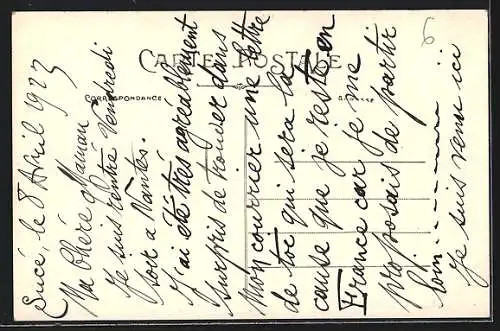 CARTE POSTALE
CORRESPONDANCE
ADRESSE
6
Sucé, le 8 Avril 1923
Ma Chère Maman
Je suis rentré Vendredi
soir a Nantes.
J'ai été très agréablement
surpris de trouver dans
mon courrier une lettre
de toi qui sera la
cause que je reste en
France car je me
proposais de partir
loin..........
Je suis venu ici